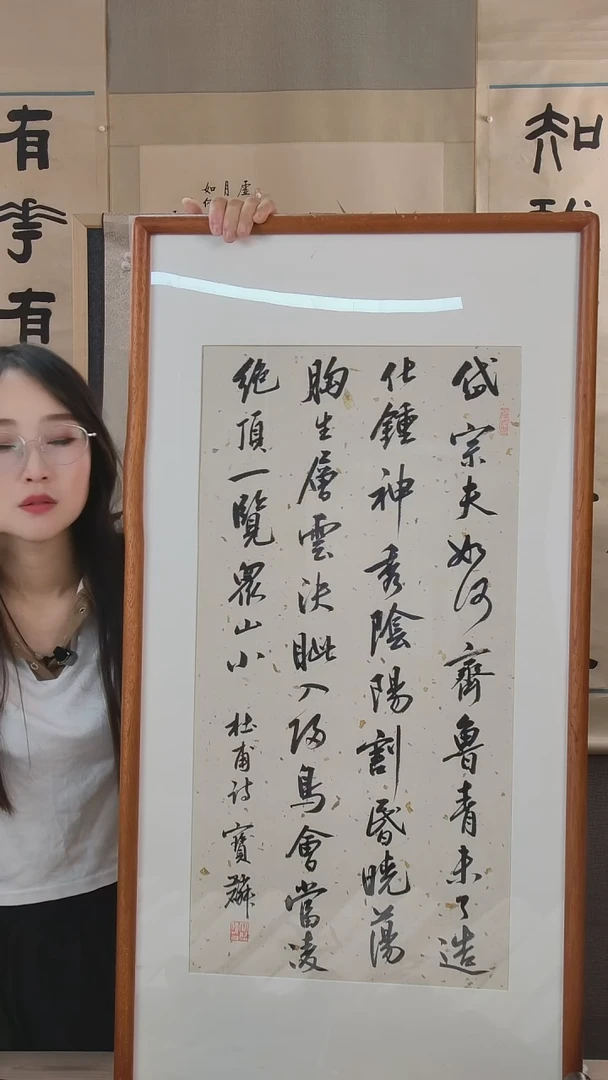 知
岱宗夫如何齊魯青未了造
化鍾神秀陰陽割昬曉蕩
胸生層雲決眦入歸鳥會當凌
絶頂一覽眾山小
杜甫詩 寶麟
虛
月
如
有
有